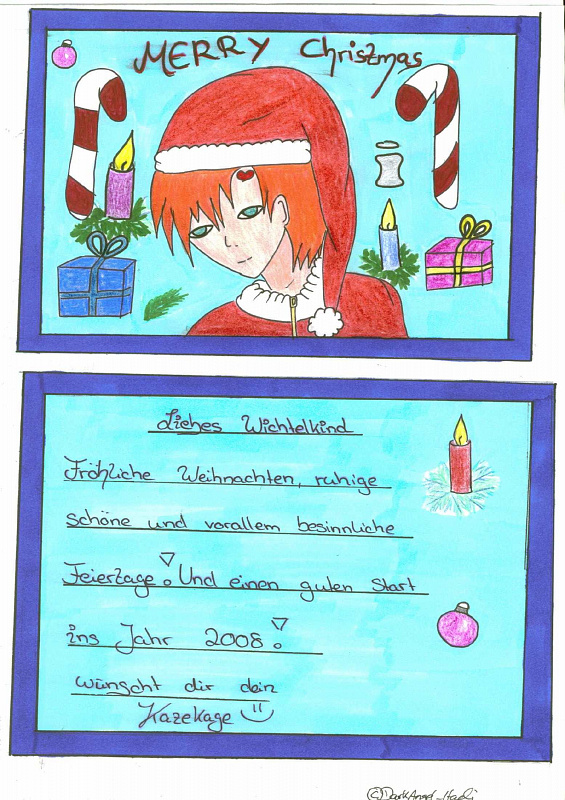 MERRY Christmas
Liebes Wichtelkind
Fröhliche Weihnachten, ruhige
schöne und vorallem besinnliche
Feiertage! Und einen guten Start
ins Jahr 2008!
wünscht dir dein
Kazekage